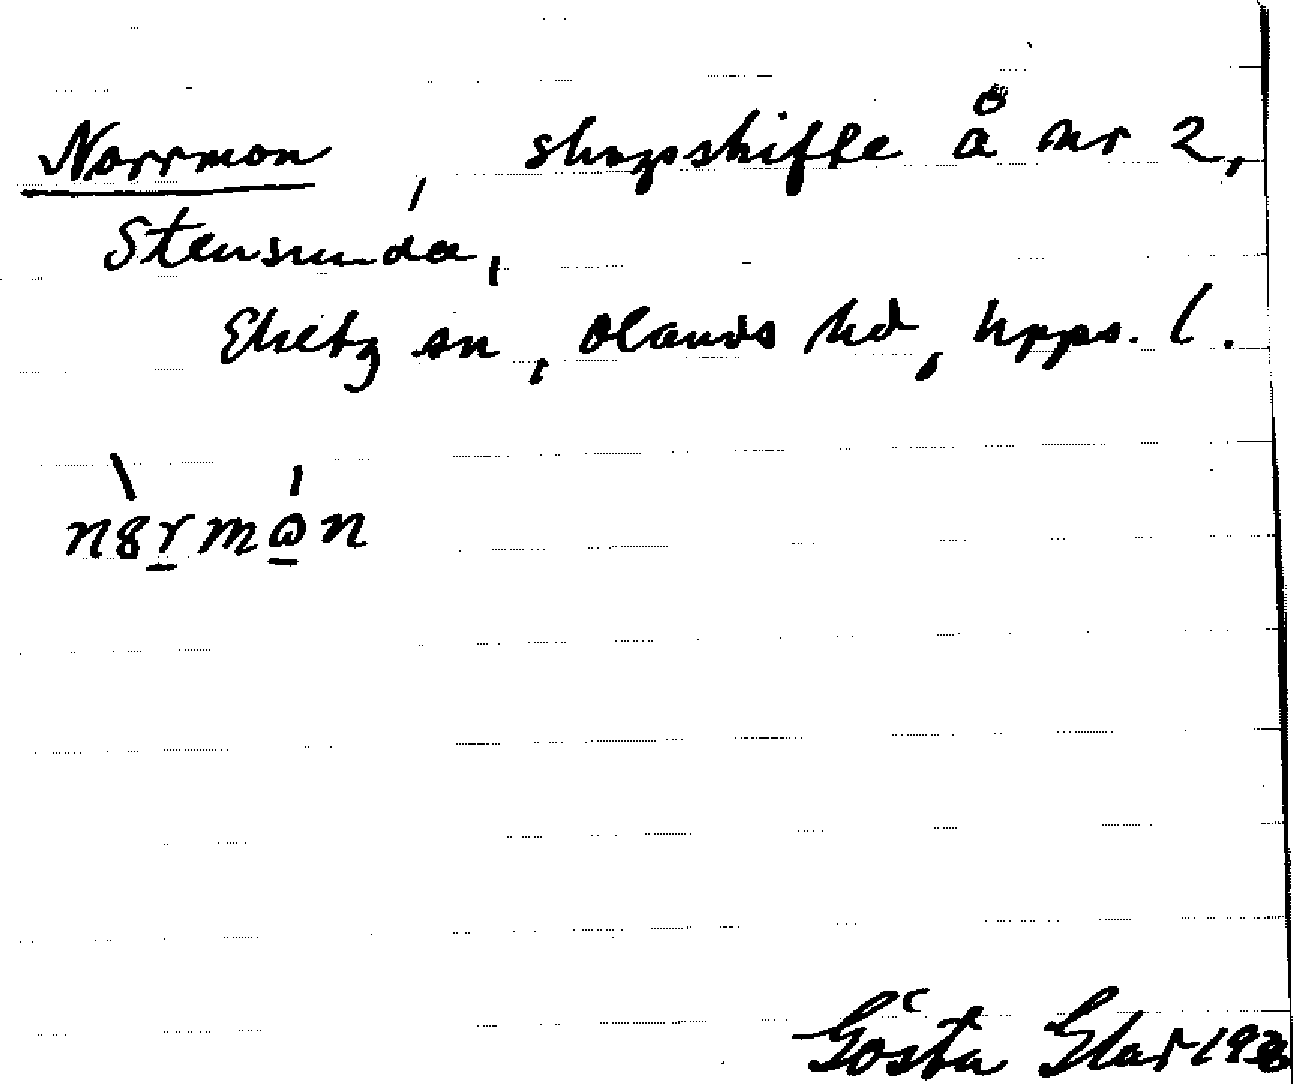 Norrmon, skogsskifte å nr 2,
Stensunda,
Ekeby sn, Olands hd, Upps. l.
Gösta